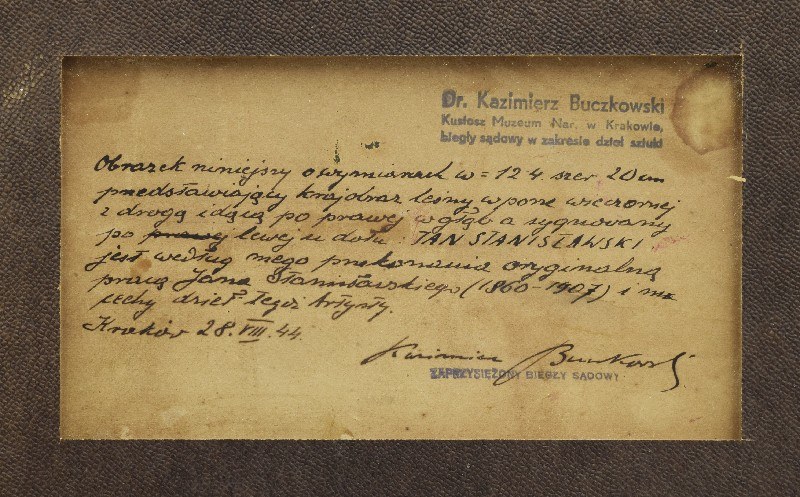 Dr. Kazimierz Buczkowski
Kustosz Muzeum Nar. w Krakowie,
biegły sądowy w zakresie dzieł sztuki
Obrazek niniejszy o wymiarach w = 12.4. szer 20 cm
przedstawiający krajobraz leśny w porze wieczornej
z drogą idącą po prawej w głąb a sygnowany
po prawej lewej u dołu JAN STANISŁAWSKI
jest według mego przekonania oryginalną
pracą Jana Stanisławskiego (1860-1907) i ma
cechy dzieł tegoż Artysty.
Kraków 28. VIII. 44.
Kazimierz Buczkowski
ZAPRZYSIĘŻONY BIEGŁY SĄDOWY